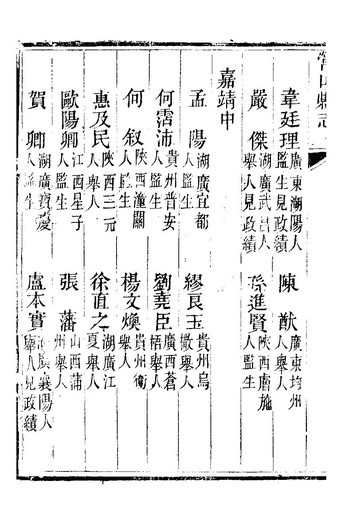 營山縣志
韋廷理 廣東潮陽人監生見政績
陳猷 廣東均州人舉人
嚴傑 湖廣武昌人舉人見政績
孫進賢 陝西膚施人監生
嘉靖中
孟陽 湖廣宜都人監生
繆良玉 貴州烏撒舉人
何霑沛 貴州晉安人監生
劉堯臣 廣西蒼梧舉人
何叙 陝西潼關人監生
楊文煥 貴州衛舉人
惠及民 陝西三元人舉人
徐直之 湖廣江夏舉人
歐陽卿 江西星子人監生
張藩 山西蒲州舉人
賀卿 湖廣寶慶人監生
盧本實 襄陽人舉人見政績